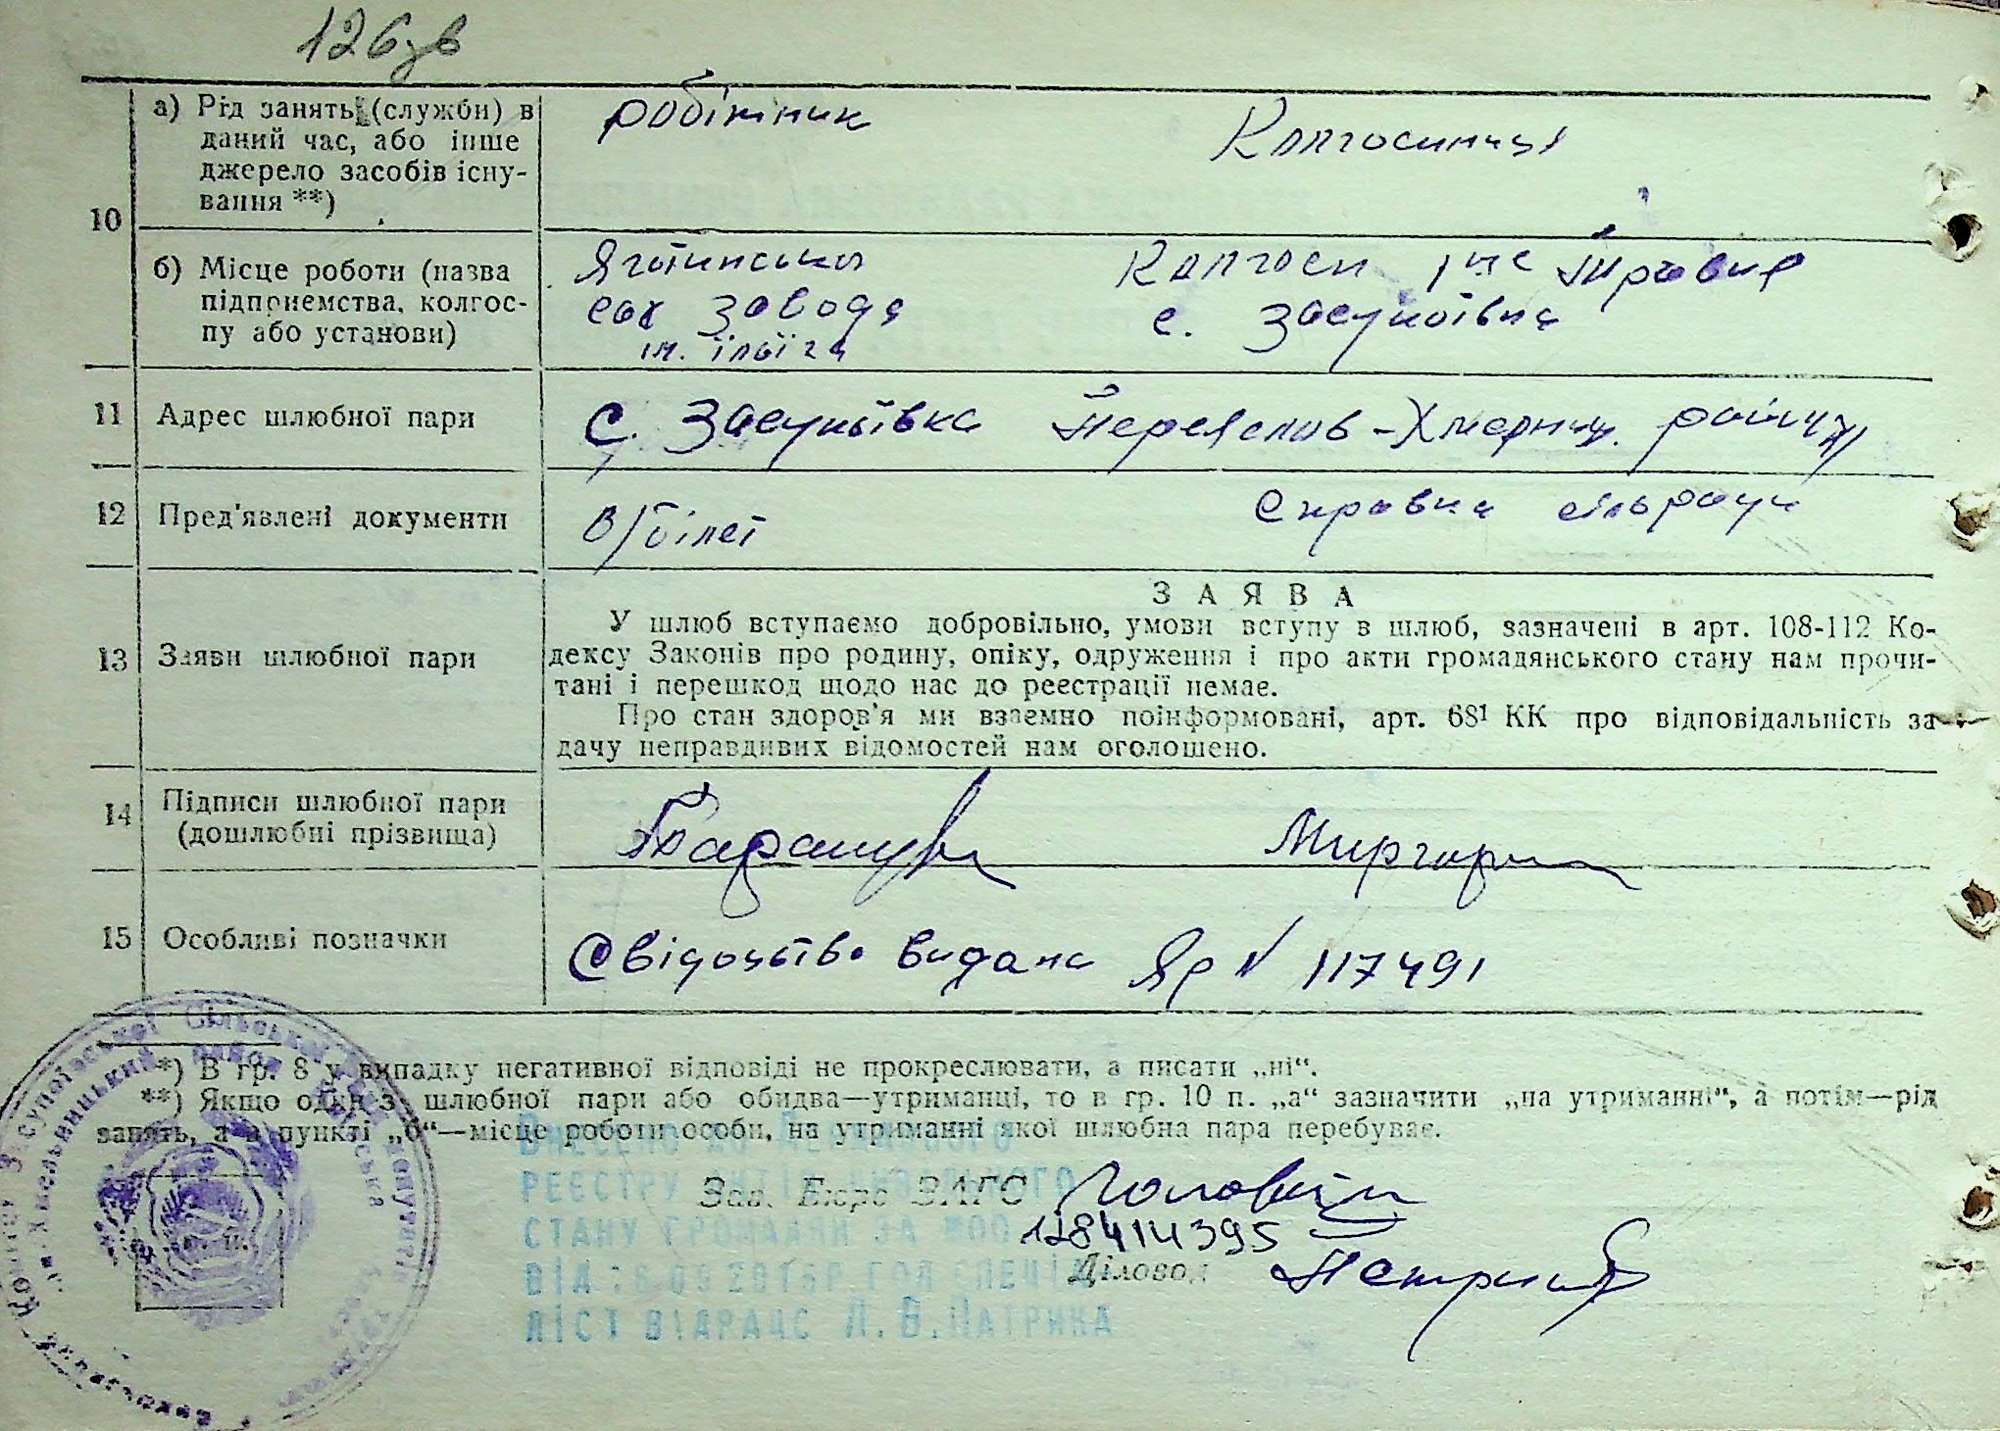 126зв
а) Рід занять (служби) в
даний час, або інше
джерело засобів існу-
вання **)
робітник
Колгоспниця
10
б) Місце роботи (назва
підприемства, колгос-
пу або установи)
Яготинський
сах завода
ім. Ілліча
Колгосп
с. Засупоївка
11 Адрес шлюбної пари
с. Засупоївка Переяслов-Хмельниц. району
12 Пред'явлені документи
в/білет
Справка сільради
13 Заяви шлюбної пари
ЗАЯВА
У шлюб вступаємо добровільно, умови вступу в шлюб, зазначені в арт. 108-112 Ко-
дексу Законів про родину, опіку, одруження і про акти громадянського стану нам прочи-
тані і перешкод щодо нас до реєстрації немає.
Про стан здоров'я ми взаємно поінформовані, арт. 68¹ КК про відповідальність за
дачу неправдивих відомостей нам оголошено.
14 Підписи шлюбної пари
(дошлюбні прізвища)
15 Особливі позначки
Свідоцтво видано Яр № 117491
*) В гр. 8 у випадку негативної відповіді не прокреслювати, а писати „ні“.
**) Якщо один з шлюбної пари або обидва—утриманці, то в гр. 10 п. „а“ зазначити „на утриманні“, а потім—рід
занять, а в пункті „б“—місце роботи особи, на утриманні якої шлюбна пара перебуває.
Зав. Бюро ЗАГС
128414395
Діловод
ВНЕСЕНО ДО ДЕРЖАВНОГО
РЕЄСТРУ АКТІВ ЦИВІЛЬНОГО
СТАНУ ГРОМАДЯН ЗА №00
ГОЛ СПЕЦІА
ЛІСТ ВІДРАЦС Л.В.ПАТРИКА